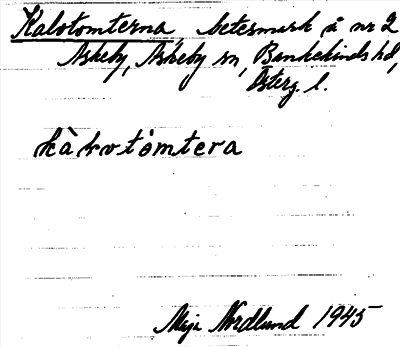 Kalotomterna betesmark å nr 2
Askeby, Askeby sn, Bankekinds hd,
Österg. l.
kàƚvotòmtera
Maja Nordlund 1945